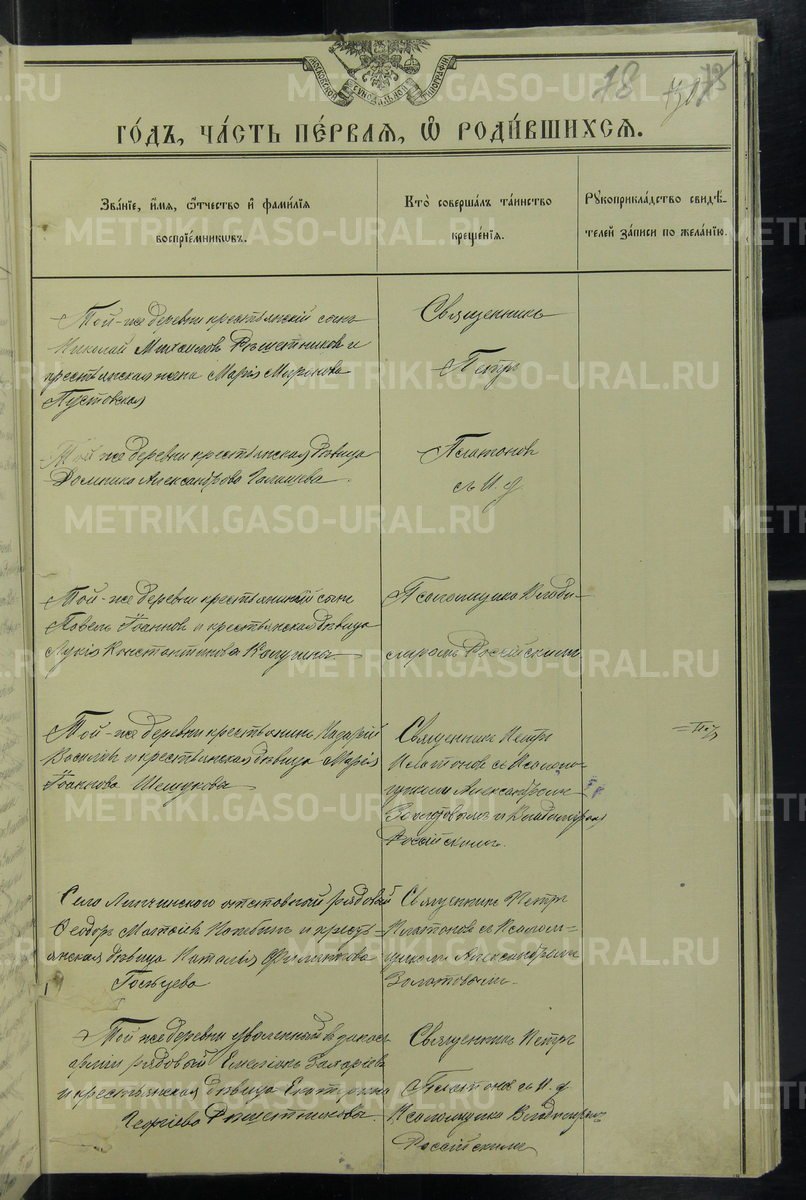 МОСКОВСКОЙ СѴНОДАЛЬНОЙ ТИПОГРАФІИ
78
ГО́ДЪ, ЧА́СТЬ ПЕ́РВАЯ, Ѡ҆ РОДИ́ВШИХСЯ.
Зва́нїе, и҆́мя, ѻ҆́тчество и҆ фами́лїя
воспрїе́мникѡвъ.
Кто̀ соверша́лъ та́инство
креще́нїя.
Рꙋкоприкла́дство свидѣ́-
телей за́писи по жела́нїю.
Той-же деревни крестьянскій сынъ
Николай Михаиловъ Рѣшетниковъ и
крестьянская жена Марія Миронова
Пустовская
Священникъ
Петръ
Той же деревни крестьянская дѣвица
Домника Александрова
Платоновъ
съ И. д.
Той-же деревни крестьянскій сынъ
Павелъ Іоанновъ и крестьянская дѣвица
Лукія Константинова
Псаломщика Влади-
міромъ Россійскимъ.
Той-же деревни крестьянинъ Назарій
Василовъ и крестьянская дѣвица Марія
Іоаннова
Священникъ Петръ
Платоновъ съ Псалом-
щикомъ Александромъ
Золотовымъ и Владиміромъ
Россійскимъ.
Села Липчинского отставной рядовой
Ѳеодоръ и кресть-
янская дѣвица Наталія Филиппова
Гольцева
Священникъ Петръ
Платоновъ съ Псалом=
щикомъ Александромъ
Золотовымъ.
Той же деревни уволенный въ запасъ
арміи рядовой Емеліанъ Захаріевъ
и крестьянская дѣвица Екатерина
Георгіева Рѣшетникова.
Священникъ Петръ
Платоновъ съ И. д.
Псаломщика Владиміромъ
Россійскимъ
METRIKI.GASO-URAL.RU